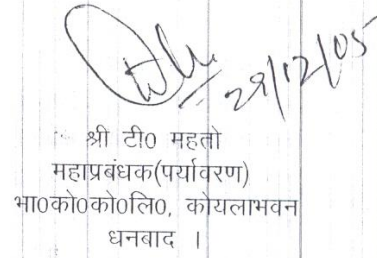 29/12/05
श्री टी० महतो
महाप्रबंधक(पर्यावरण)
भा०को०को०लि०, कोयलाभवन
धनबाद ।